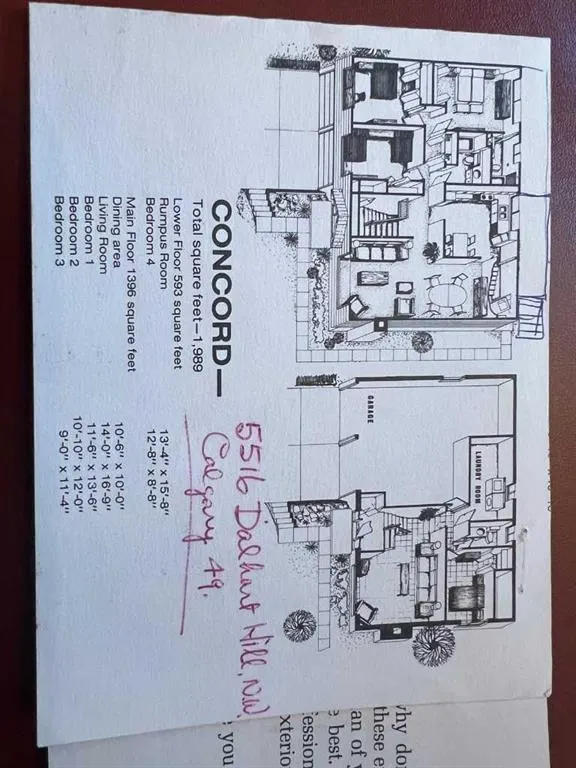 CONCORD—
Total square feet—1,989
Lower Floor 593 square feet
Rumpus Room 13'-4" x 15'-8"
Bedroom 4 12'-8" x 8'-8"
Main Floor 1396 square feet
Dining area 10'-6" x 10'-0"
Living Room 14'-0" x 16'-9"
Bedroom 1 11'-6" x 13'-6"
Bedroom 2 10'-10" x 12'-0"
Bedroom 3 9'-0" x 11'-4"
5516 Dalhart Hill, N.W.
Calgary 49.
GARAGE
LAUNDRY ROOM
these e
an of y
best.
you